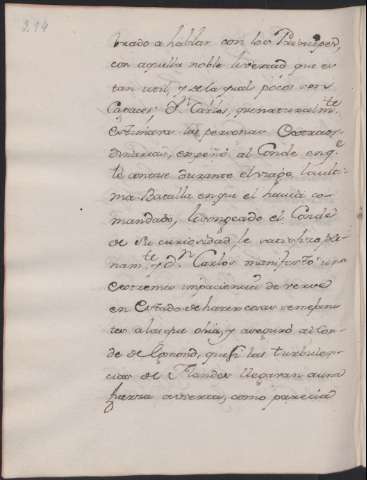 314
trado a hablar con los Principes,
con aquella noble livertad que es
tan util, y de la qual pocos son
Capaces. Dn Carlos, que naturalmte
estimava las personas Extraor-
dinarias, empeñó al Conde en qe
le contase durante el viage la ulti-
ma Batalla en que el havia co-
mandado, lisongeado el Conde
de su curiosidad, le satisfizo ple-
namte y Dn Carlos manifestó una
extrema impaciencia de verse
en Estado de hacer cosas semejan-
tes a las que oía, y aseguró al Con-
de de Egmond, que si las turbulen-
cias de Flandes llegavan a una
fuerza avierta, como parecia